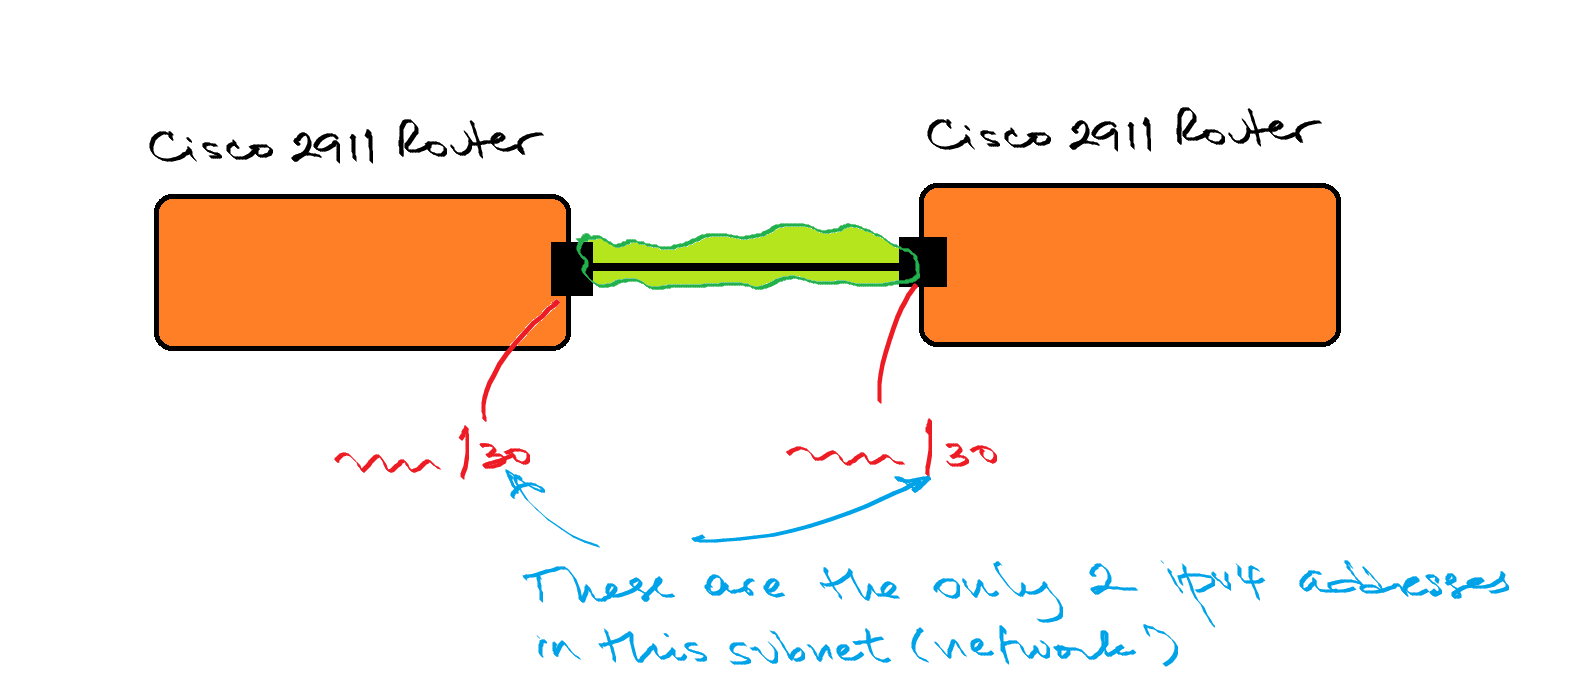 Cisco 2911 Router
Cisco 2911 Router
/30
/30
These are the only 2 ipv4 addresses
in this subnet (network)